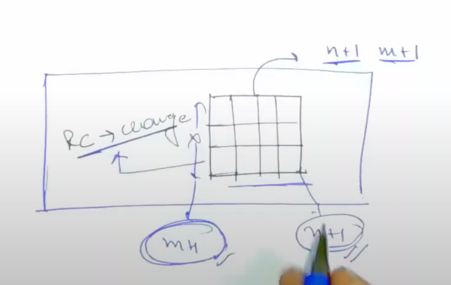 n+1 m+1
RC → change
m+1
n+1